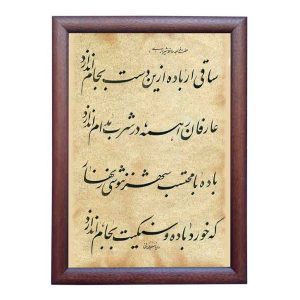 ساقی ار باده ازین دست بجام اندازد
عارفان را همه در شرب مدام اندازد
باده با محتسب شهر ننوشی زنهار
که خورد باده و سنگت بجام اندازد